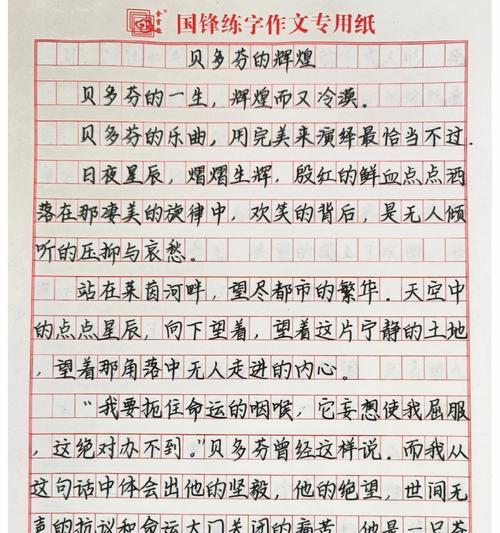 国锋练字作文专用纸
贝多芬的辉煌
贝多芬的一生，辉煌而又冷漠。
贝多芬的乐曲，用完美来演绎最恰当不过.
日夜星辰，熠熠生辉，殷红的鲜血点点洒
落在那凄美的旋律中，欢笑的背后，是无人倾
听的压抑与哀愁。
站在莱茵河畔，望尽都市的繁华。天空中
的点点星辰，向下望着，望着这片宁静的土地
，望着那角落中无人走进的内心。
“我要扼住命运的咽喉，它妄想使我屈服
，这绝对办不到。”贝多芬曾经这样说。而我从
这句话中体会出他的坚毅，他的绝望，世间无
声的抗议和命运大门关闭的痛苦。他是一只苍